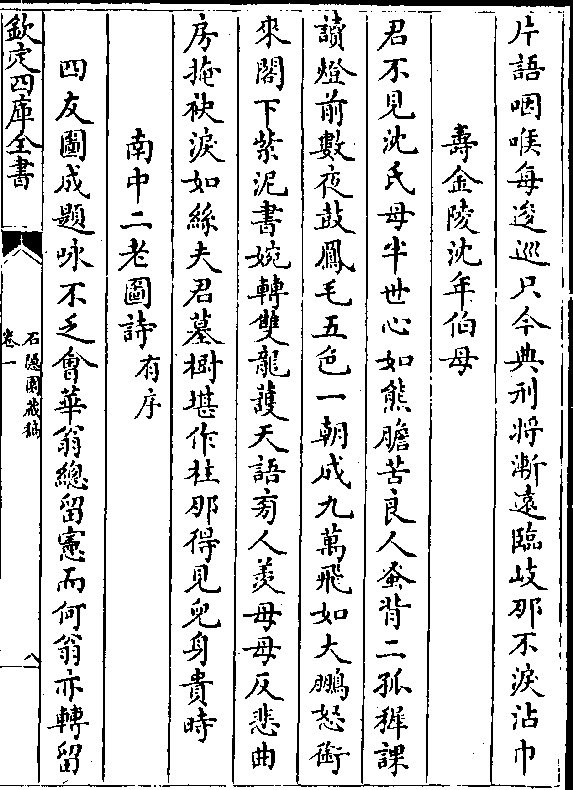 片語咽喉每逡巡只今典刑將漸遠臨歧那不淚沾巾
壽金陵沈年伯母
君不見沈氏母半世心如熊膽苦良人蚤背二孤穉課
讀燈前數夜鼓鳳毛五色一朝成九萬飛如大鵬怒銜
來閣下紫泥書婉轉雙龍護天語旁人羨母母反悲曲
房掩袂淚如絲夫君墓樹堪作柱那得見兒身貴時
南中二老圖詩有序
四友圖成題咏不乏會華翁總留憲而何翁亦轉留
欽定四庫全書
石隱園藏稿
卷一
八